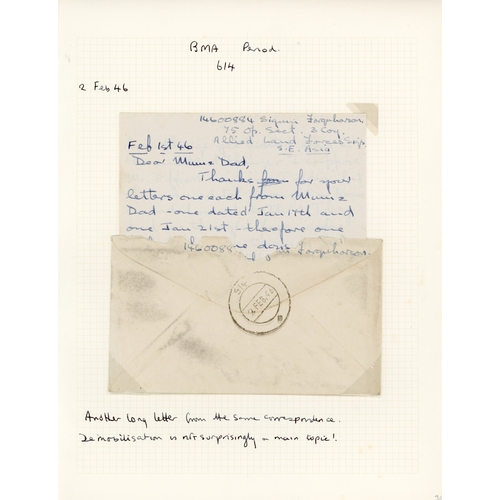 BMA Period.
614
2 Feb 46
14600884 Signm Farquharson.
75 Op. Sect. 2 Coy.
Allied Land Forces Sigs
S.E. Asia
Feb 1st 46
Dear Mum & Dad,
Thanks for your
letters one each from Mum &
Dad - one dated Jan 17th and
one Jan 21st - therefore one
one don't
Farquharson.
2 FEB. 46
Another long letter from the same correspondence.
Demobilisation is not surprisingly a main topic!.